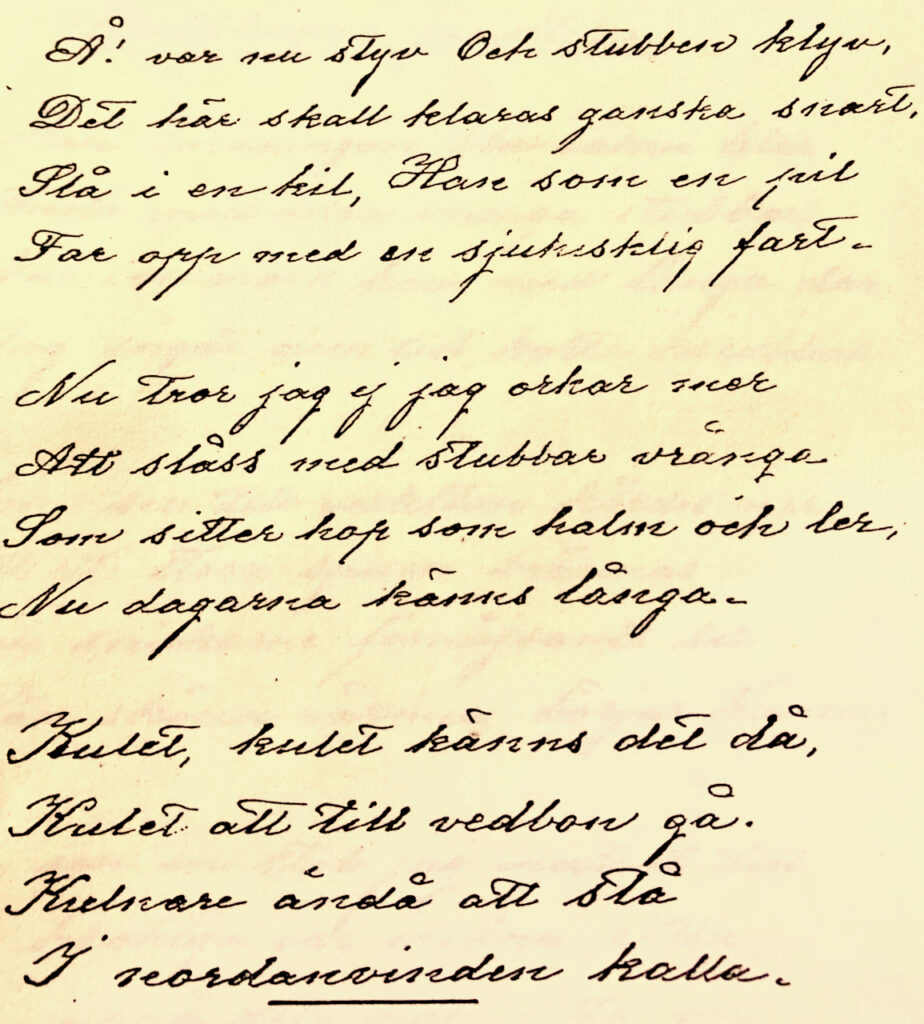 Å! var nu styv Och stubben klyv,
Det här skall klaras ganska snart,
Slå i en kil, Han som en pil
Far opp med en sjuhisklig fart.
Nu tror jag ej jag orkar mer
Att slåss med stubbar vränga
Som sitter hop som halm och ler,
Nu dagarna känns långa.
Kulet, kulet känns det då,
Kulet att till vedbon gå.
Kulnare ändå att stå
I nordanvinden kalla.